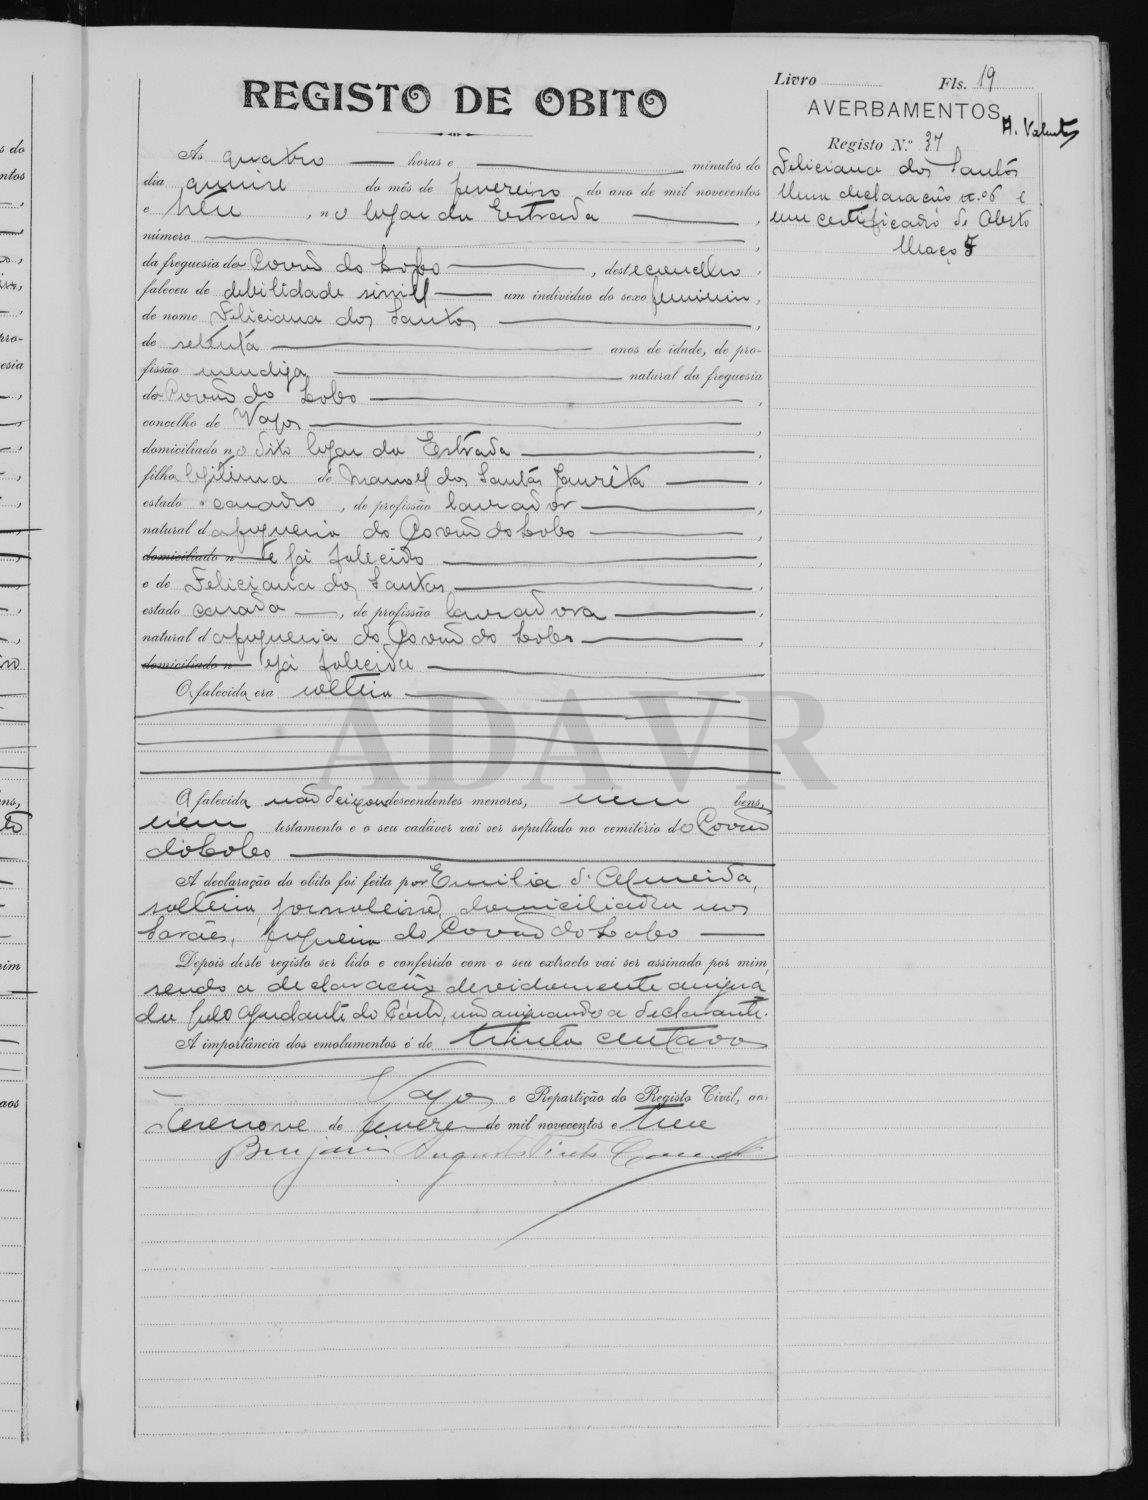 Livro Fls. 19
REGISTO DE OBITO
AVERBAMENTOS
A. Valente
Registo N.º 37
Feliciana dos Santos
Uma declaração n.º 6 e
um certificado de obito
Maço 5
As quatro horas e minutos do
dia quinze do mês de fevereiro do ano de mil novecentos
e treze, no logar da Estrada,
número,
da freguesia do Covão do Lobo, deste concelho,
faleceu de debilidade senil um individuo do sexo feminino,
de nome Feliciana dos Santos,
de setenta anos de idade, de pro-
fissão mendiga natural da freguesia
do Covão do Lobo,
concelho de Vagos,
domiciliado no dito logar da Estrada,
filha legitima de Manoel dos Santos,
estado casado, de profissão lavrador,
natural da freguesia do Covão do Lobo,
domiciliado n e já falecido,
e de Feliciana dos Santos,
estado casada, de profissão lavradora,
natural da freguesia do Covão do Lobo,
domiciliado n já falecida
A falecida era solteira
ADAVR
A falecida não deixou descendentes menores, nem bens,
nem testamento e o seu cadáver vai ser sepultado no cemitério do Covão
do Lobo
A declaração do obito foi feita por Emilia d'Almeida,
solteira, jornaleira, domiciliada nos
freguesia do Covão do Lobo
Depois deste registo ser lido e conferido com o seu extracto vai ser assinado por mim,
sendo a declaração devidamente assigna
da pelo ajudante do Posto, não assignando a declarante.
A importância dos emolumentos é de trinta centavos
Vagos e Repartição do Registo Civil, aos
dezenove de fevereiro de mil novecentos e treze
Benjamim Augusto Pinto